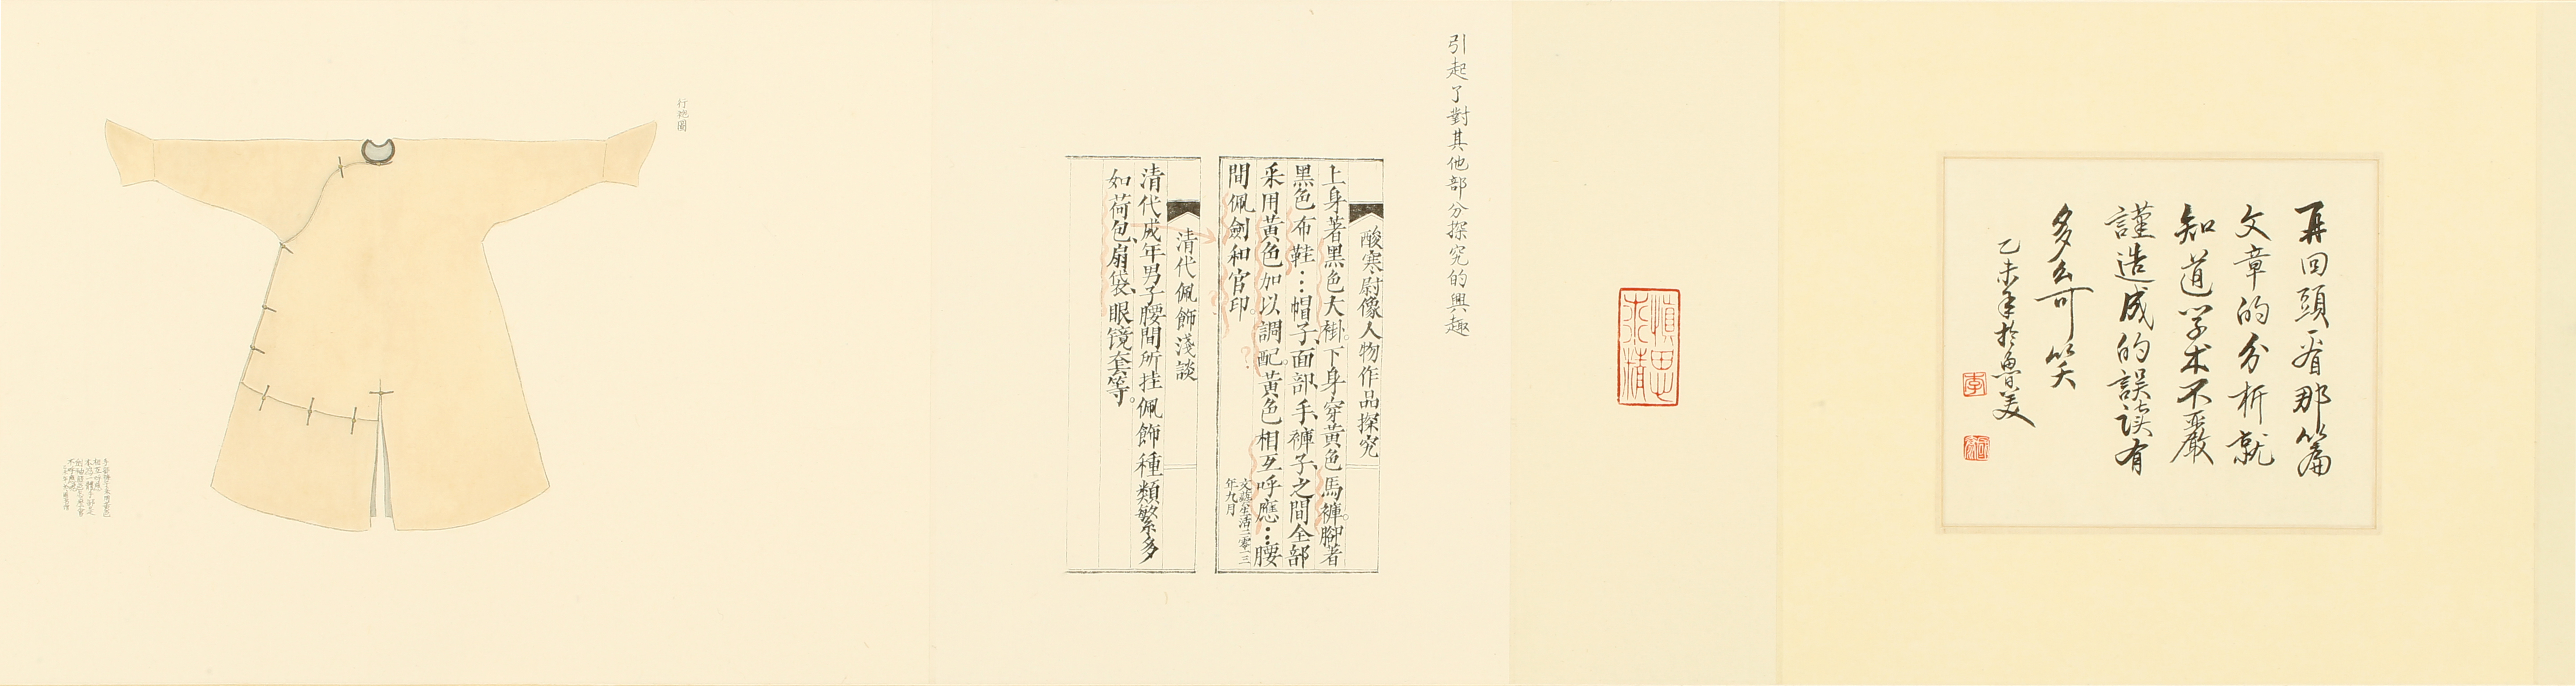 再回頭看那篇
文章的分析就
知道学术不嚴
謹造成的誤读有
多么可笑
乙未年於魯美
李
慎思
求精
引起了對其他部分探究的興趣
酸寒尉像人物作品探究
上身著黑色大褂。下身穿黃色馬褲。腳著
黑色布鞋…帽子、面部、手、褲子之間全部
采用黃色加以調配。黃色相互呼應…腰
間佩劍和官印。
文藝生活二零一三
年九月
清代佩飾淺談
清代成年男子腰間所挂佩飾種類繁多
如荷包、扇袋、眼镜套等。
行袍圖